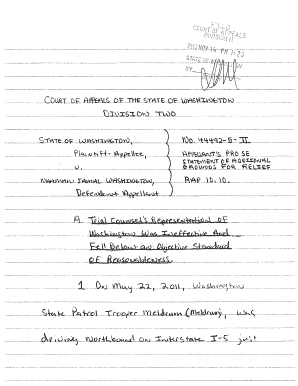 FILED
COURT OF APPEALS
DIVISION II
2013 NOV 14 PM 1:23
STATE OF
BY
COURT OF APPEALS OF THE STATE OF WASHINGTON
DIVISION TWO
STATE OF WASHINGTON,
Plaintiff-Appellee,
v.
JAMAL WASHINGTON,
Defendant Appellant
No. 44492-5-II
APPELLANT'S PRO SE
STATEMENT OF ADDITIONAL
GROUNDS FOR RELIEF
RAP 10.10.
A. Trial Counsel's Representation OF
Washington Was Ineffective And
Fell Below an Objective Standard
OF Reasonableness
1. On May 22, 2011, Washington
State Patrol Trooper Meldrum (Meldrum), was
driving northbound on Interstate I-5 just